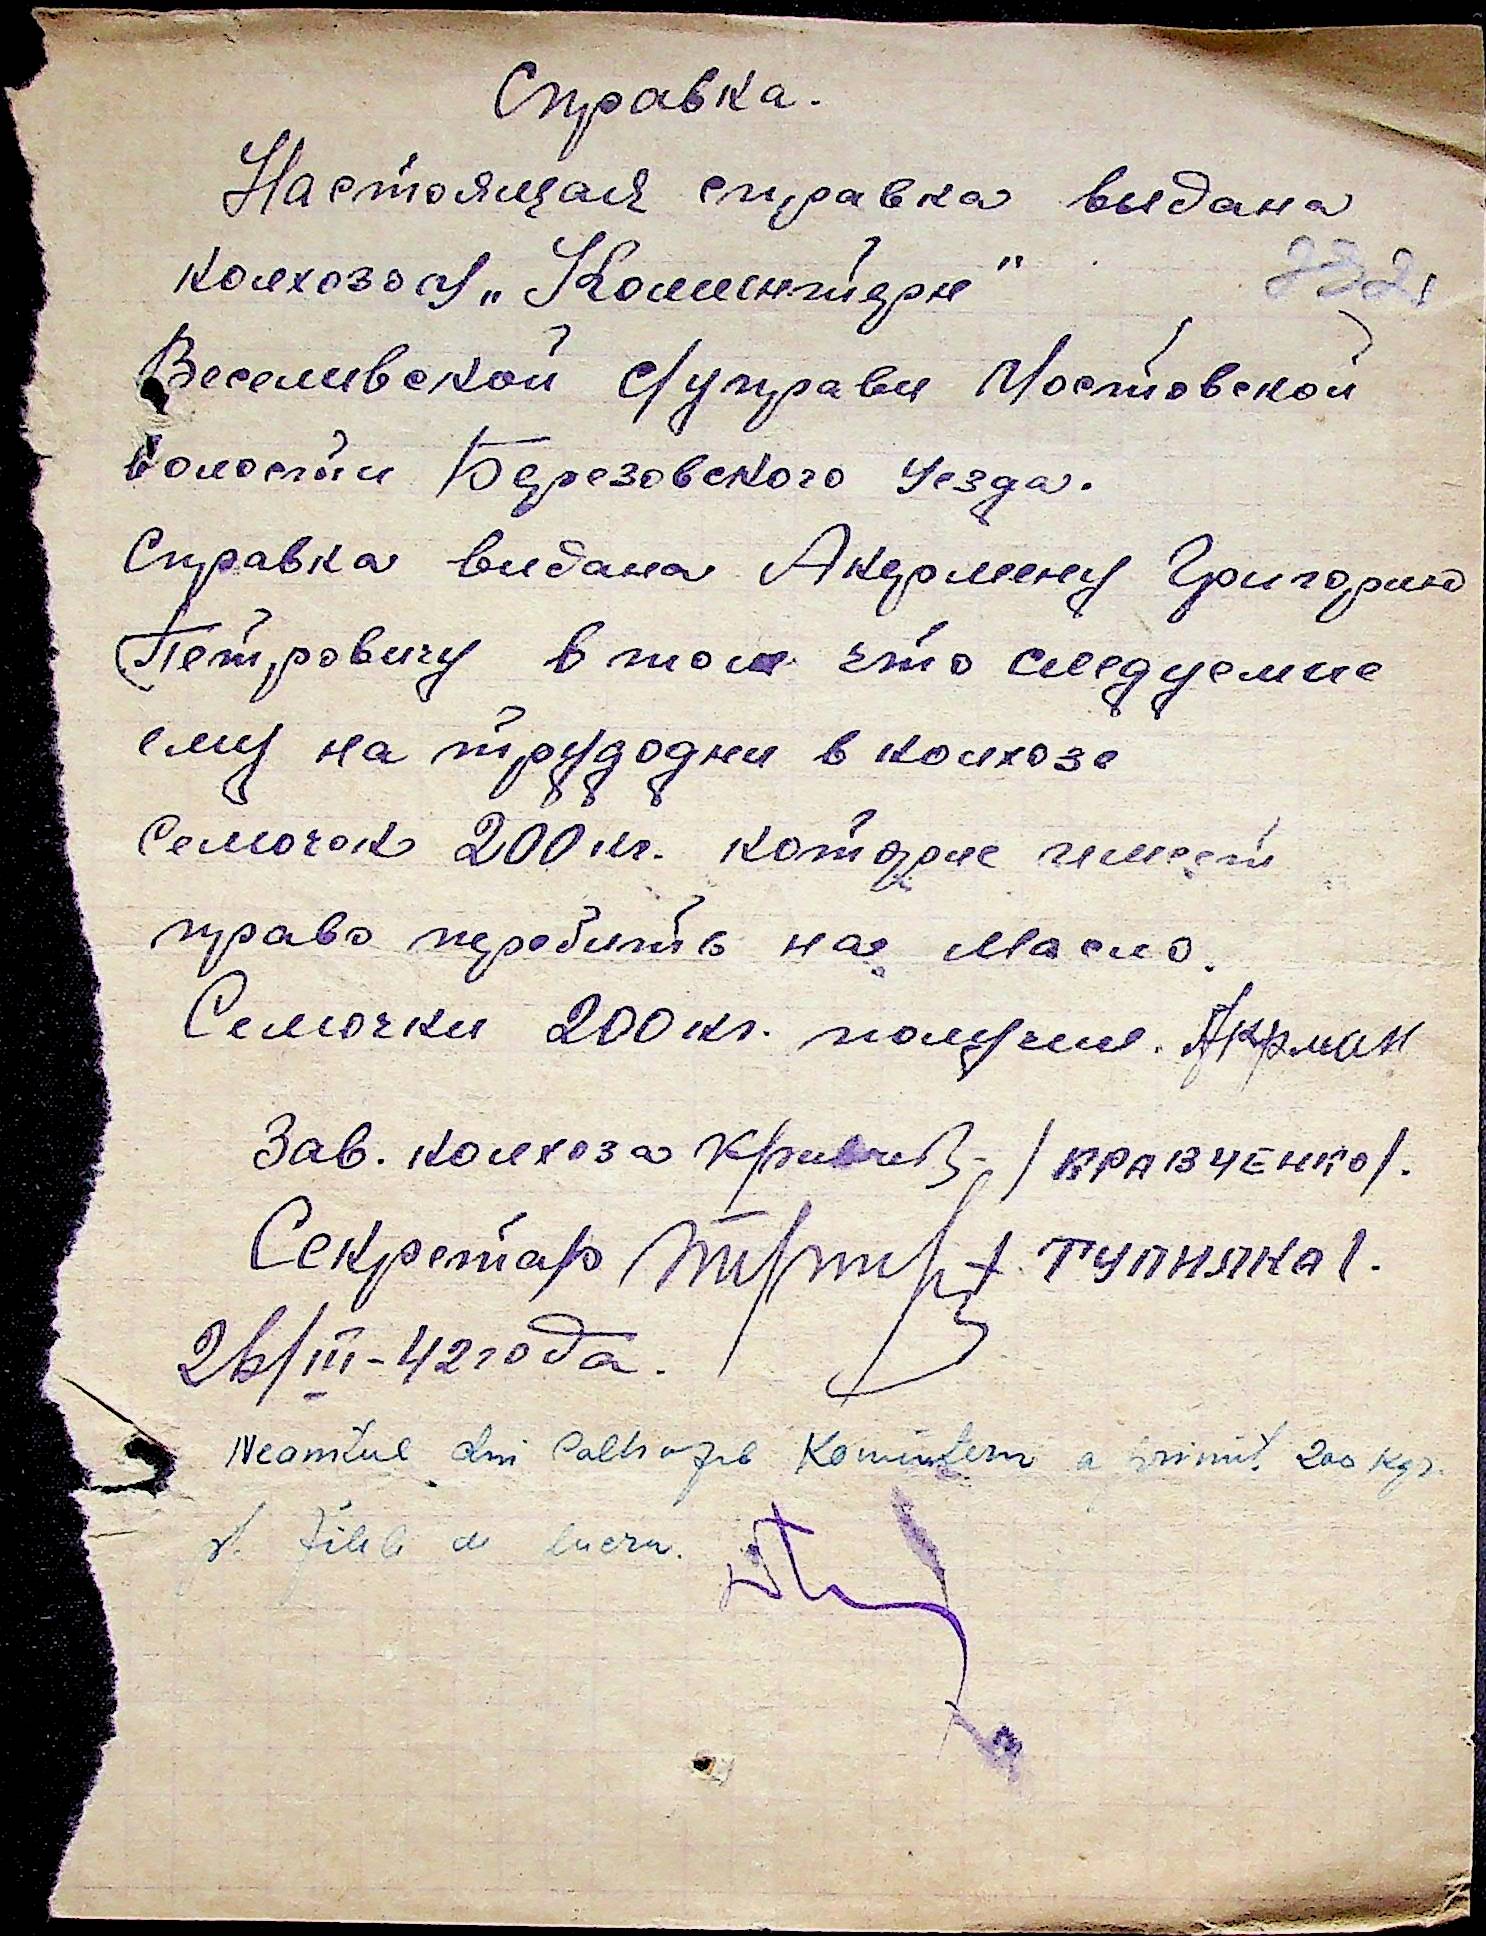 Справка.
Настоящая справка выдана
колхозом „Коминтерн"
Веселивской с/управи Мостовской
волости Березовского уезда.
Справка видана Акермену Григорию
Петровичу в том что следуемие
ему на трудодни в колхозе
семочек 200 кг. которые имеет
право перебить на масло.
Семочки 200 кг. получил. Акрман
Зав. колхоза /КРАВЧЕНКО/.
Секретар /ТУПИЛКА/.
26/III-42 года.
Neamtul din Colhozul Komintern a primit 200 kgr.
pt. zilele de lucru.